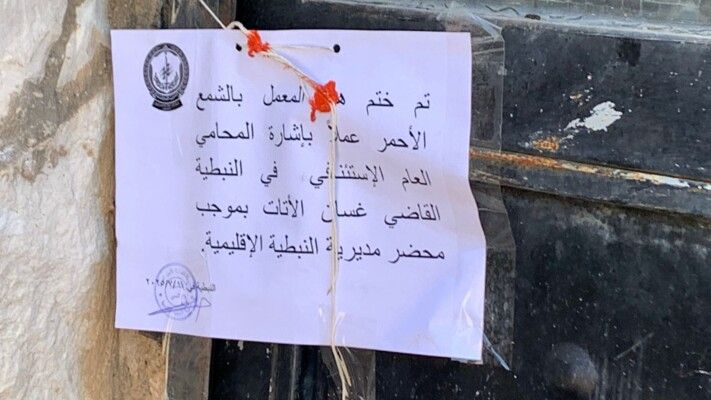 تم ختم المعمل بالشمع
الأحمر عملاً بإشارة المحامي
العام الإستئنافي في النبطية
القاضي غسان الأتات بموجب
محضر مديرية النبطية الإقليمية.
النبطية في